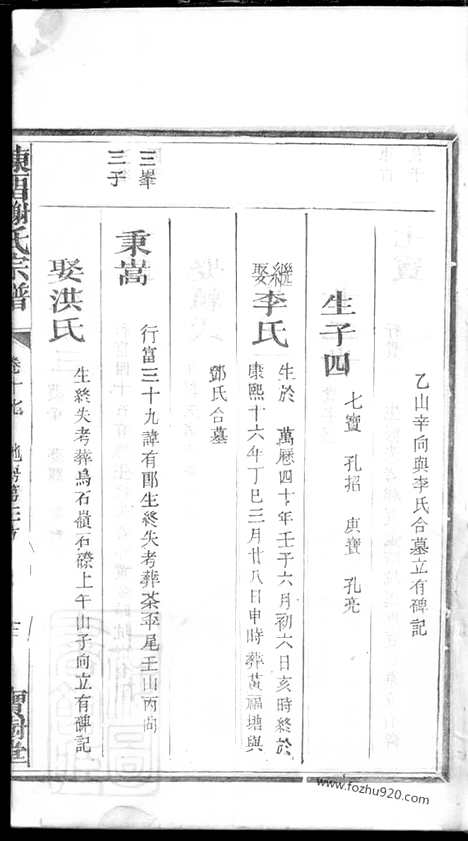 乙山辛向與李氏合墓立有碑記
生子四
七寶 孔招 典寶 孔亮
繼娶李氏
生於 萬曆四十年壬子六月初六日亥時終於
康熙十六年丁巳三月廿八日申時葬黃福塘與
鄧氏合墓
三峯
三子
秉嵩
行富三十九諱有郎生終失考葬茶平尾壬山丙向
娶洪氏
生終失考葬鳥石嶺石磜上午山子向立有碑記
謝氏宗譜
寶樹堂
www.fozhu920.com